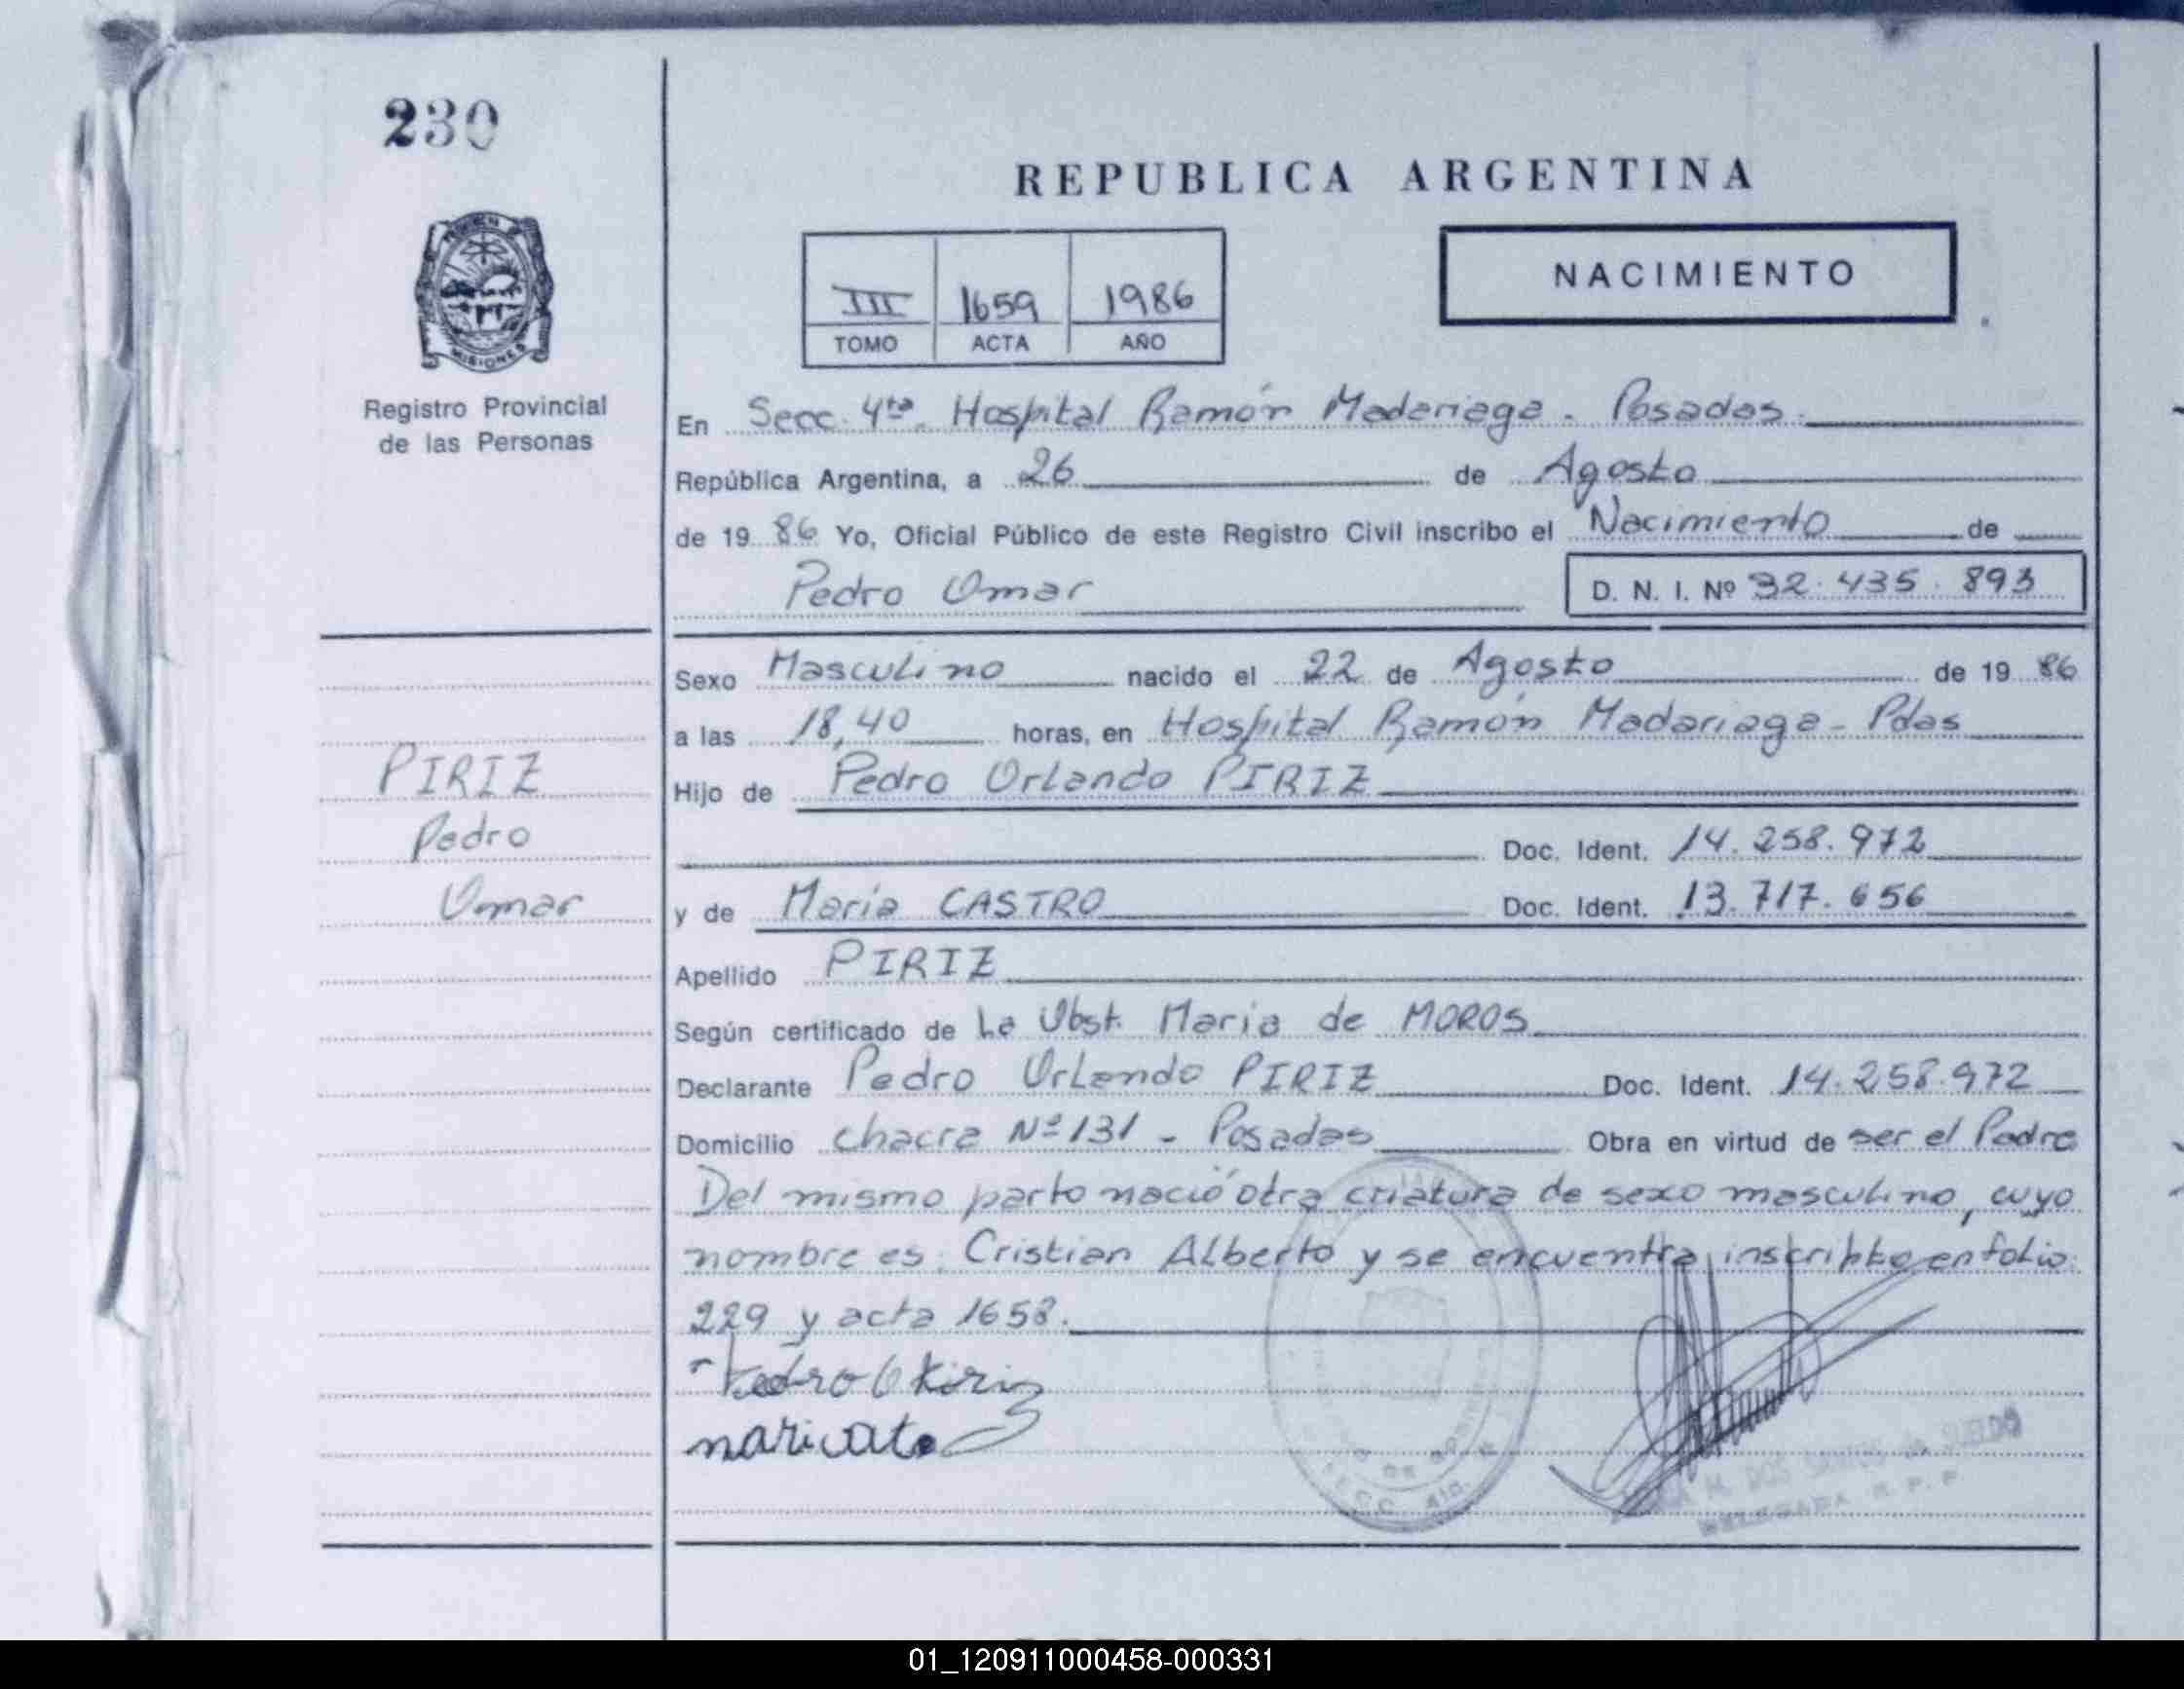 230
REPUBLICA ARGENTINA
III 1659 1986
TOMO ACTA AÑO
NACIMIENTO
MISIONES
Registro Provincial
de las Personas
En Secc. 4ta. Hospital Ramón Madariaga - Posadas.
República Argentina, a 26 de Agosto
de 19 86 Yo, Oficial Público de este Registro Civil inscribo el Nacimiento de
Pedro Omar D. N. I. Nº 32.435.893
Sexo Masculino nacido el 22 de Agosto de 19 86
a las 18,40 horas, en Hospital Ramón Madariaga - Pdas
PIRIZ
Pedro
Omar
Hijo de Pedro Orlando PIRIZ
Doc. Ident. 14.258.972
y de María CASTRO Doc. Ident. 13.717.656
Apellido PIRIZ
Según certificado de La Obst. Maria de MOROS
Declarante Pedro Orlando PIRIZ Doc. Ident. 14.258.972
Domicilio chacra Nº 131 - Posadas Obra en virtud de ser el Padre
Del mismo parto nació otra criatura de sexo masculino, cuyo
nombre es: Cristian Alberto y se encuentra inscripto en folio:
229 y acta 1658.
M. DOS SANTOS de SUELDO
DELEGADA R. P. P
01_120911000458-000331